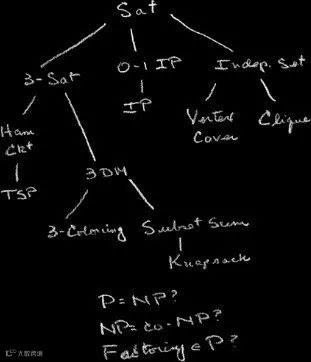 Sat
3-Sat
0-1 IP
Indep. Set
IP
Ham
Ckt
Vertex
Cover
Clique
TSP
3DM
3-Coloring
Subset Sum
Knapsack
P=NP?
NP=co-NP?
Factoring ∈ P?